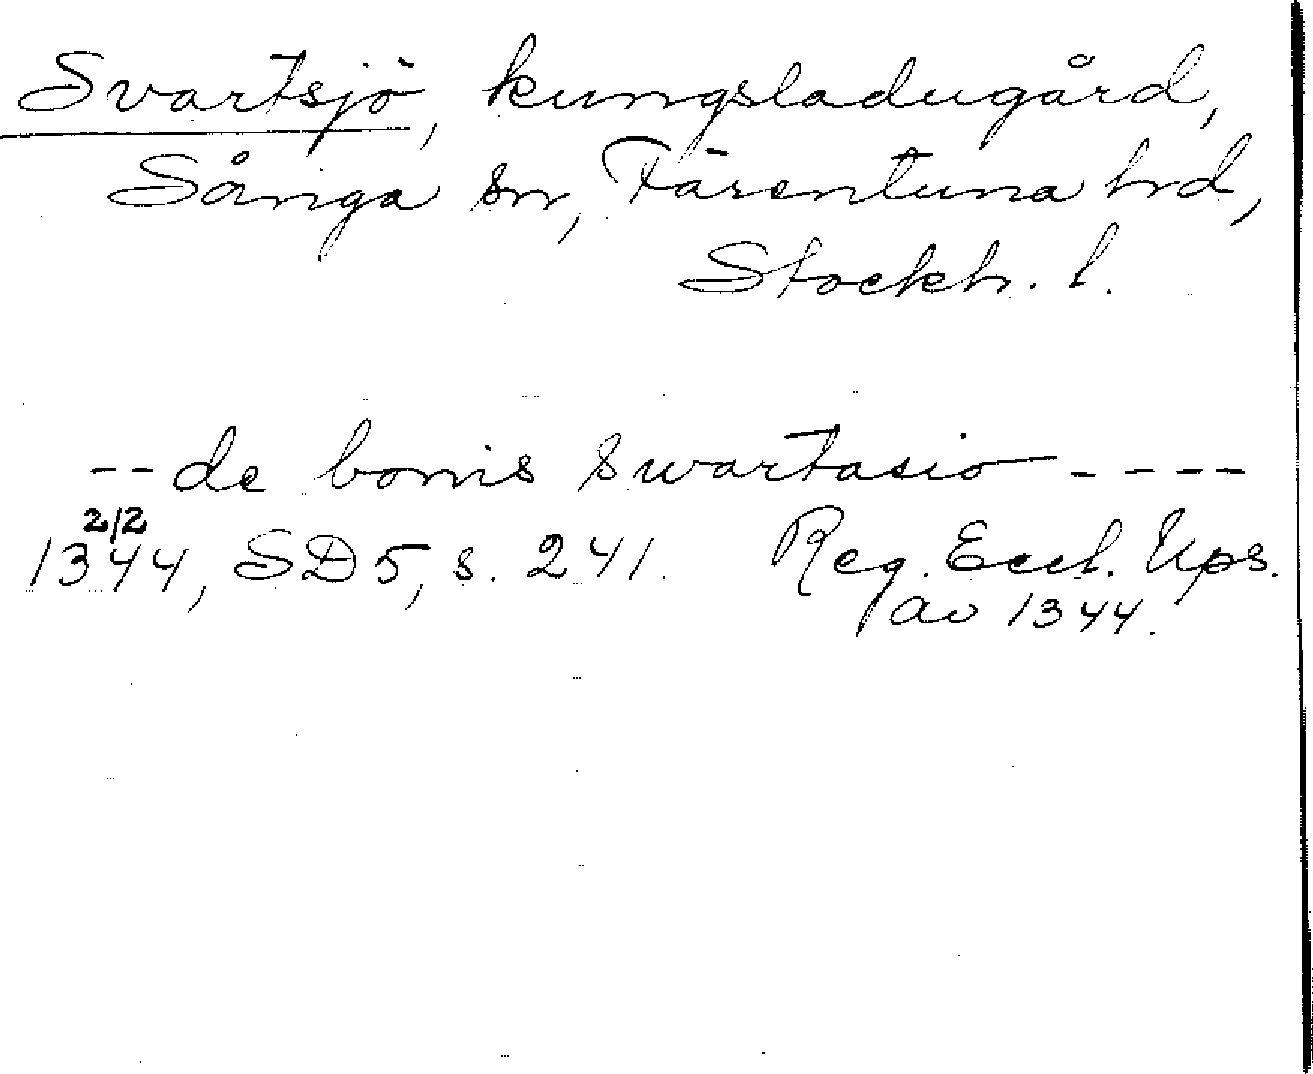 Svartsjö, kungsladugård,
Sånga sn, Färentuna hrd,
Stockh. l.
-- de bonis swartasio ----
2/2
1344, SD 5, s. 241. Reg. Eccl. Ups.
av 1344.